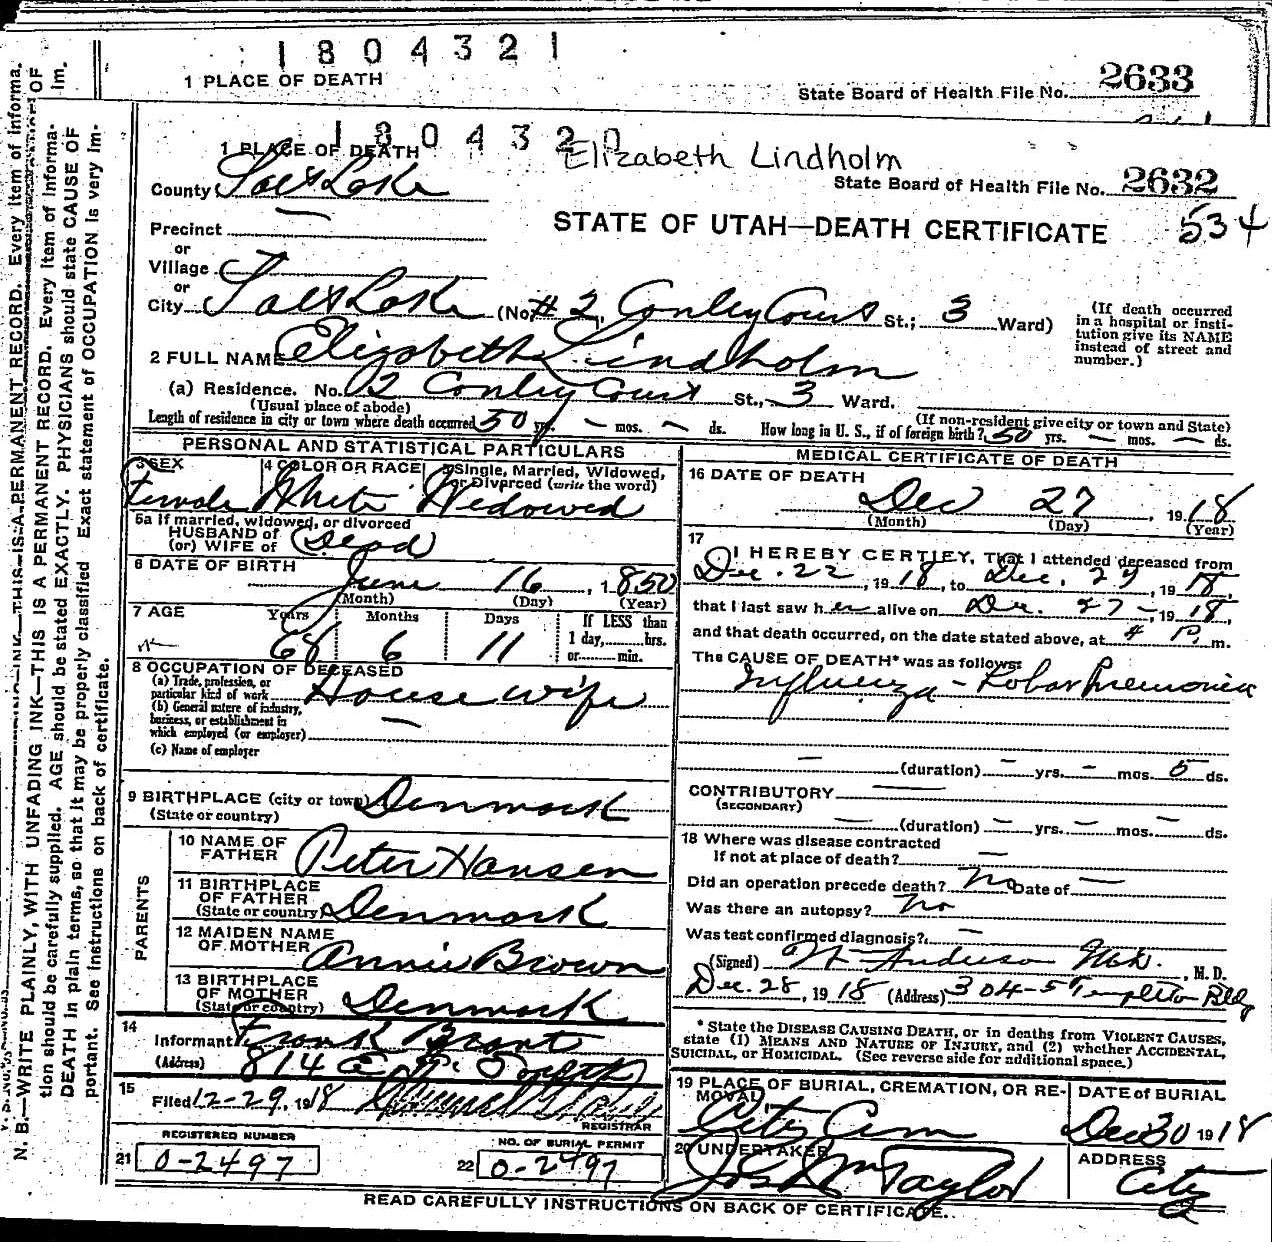 1804321
1 PLACE OF DEATH
State Board of Health File No. 2633
180432
1 PLACE OF DEATH
Elizabeth Lindholm
County Salt Lake
State Board of Health File No. 2632
STATE OF UTAH—DEATH CERTIFICATE 534
Precinct —
or
Village
or
City Salt Lake (No. #2, Conley Court St.; 3 Ward)
(If death occurred in a hospital or insti-
tution give its NAME
instead of street and
number.)
2 FULL NAME Elizabeth Lindholm
(a) Residence. No. 2 Conley Court St., 3 Ward.
(Usual place of abode)
(If non-resident give city or town and State)
Length of residence in city or town where death occurred 50 yrs. — mos. — ds. How long in U. S., if of foreign birth? 50 yrs. — mos. — ds.
PERSONAL AND STATISTICAL PARTICULARS
3 SEX
Female
4 COLOR OR RACE
White
5 Single, Married, Widowed,
or Divorced (write the word)
Widowed
5a If married, widowed, or divorced
HUSBAND of
(or) WIFE of (Dead)
6 DATE OF BIRTH
June 16, 1850
(Month) (Day) (Year)
7 AGE
Years Months Days
68 6 11
If LESS than
1 day, hrs.
or min.
8 OCCUPATION OF DECEASED
(a) Trade, profession, or
particular kind of work Housewife
(b) General nature of industry,
business, or establishment in
which employed (or employer) —
(c) Name of employer
9 BIRTHPLACE (city or town) Denmark
(State or country)
PARENTS
10 NAME OF
FATHER Peter Hansen
11 BIRTHPLACE
OF FATHER
(State or country) Denmark
12 MAIDEN NAME
OF MOTHER Annie Brown
13 BIRTHPLACE
OF MOTHER
(State or country) Denmark
14
Informant Frank Brant
(Address) 814 E
15
Filed 12-29, 1918
REGISTRAR
REGISTERED NUMBER
21 0-2497
NO. OF BURIAL PERMIT
22 0-2497
MEDICAL CERTIFICATE OF DEATH
16 DATE OF DEATH
Dec 27, 1918
(Month) (Day) (Year)
17
I HEREBY CERTIFY, That I attended deceased from
Dec. 22, 1918, to Dec. 27, 1918,
that I last saw her alive on Dec. 27-, 1918,
and that death occurred, on the date stated above, at 4 P. m.
The CAUSE OF DEATH* was as follows:
Influenza - Lobar Pneumonia
— (duration) — yrs. — mos. 5 ds.
CONTRIBUTORY —
(SECONDARY)
— (duration) — yrs. — mos. — ds.
18 Where was disease contracted
If not at place of death? —
Did an operation precede death? No Date of —
Was there an autopsy? No
Was test confirmed diagnosis? —
(Signed) Anderson, M. D.
Dec. 28, 1918 (Address) 304-5 Templeton Bldg
* State the DISEASE CAUSING DEATH, or in deaths from VIOLENT CAUSES,
state (1) MEANS AND NATURE OF INJURY, and (2) whether ACCIDENTAL,
SUICIDAL, or HOMICIDAL. (See reverse side for additional space.)
19 PLACE OF BURIAL, CREMATION, OR RE-
MOVAL
City Cem
DATE of BURIAL
Dec 30 1918
20 UNDERTAKER
Jos Wm Taylor
ADDRESS
City
READ CAREFULLY INSTRUCTIONS ON BACK OF CERTIFICATE.
N. B.—WRITE PLAINLY, WITH UNFADING INK—THIS IS A PERMANENT RECORD. Every item of informa-
tion should be carefully supplied. AGE should be stated EXACTLY. PHYSICIANS should state CAUSE OF
DEATH in plain terms, so that it may be properly classified. Exact statement of OCCUPATION is very im-
portant. See instructions on back of certificate.